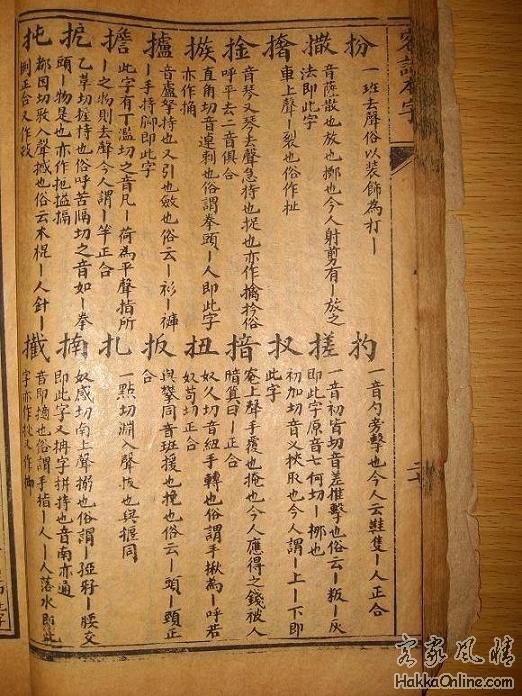 客話本字
扮 一班去聲俗以裝飾為打ー
撒 音薩散也放也擲也今人射剪有ー放之
法即此字
撦 車上聲ー裂也俗作扯
捦 音琴又琴去聲急持也捉也亦作擒扲俗
呼平去二音俱合
直角切音逴刺也俗謂拳頭ー人即此字
亦作捅
攎 音盧拏持也又引也斂也俗云ー衫ー褲
ー手持腳即此字
擔 此字有丁濫切之音凡ー荷為平聲指所
ー之物則去聲今人謂ー半正合
扼 乙革切握持也俗呼苦隔切之音如ー拳
頭ー物是也亦作搤搹
扽 都困切敦入聲撼也俗云木棍ー人針ー
正合又作
扚 一音勺旁擊也今人云鞋隻ー人正合
搓 一音初皆切音差推擊也俗云ー粄ー灰
即此字原音七何切ー挪也
扠 初加切音叉挾取也今人謂ー上ー下即
此字
揞 庵上聲手覆也掩也今人應得之錢被人
暗算曰ー正合
扭 奴久切音紐手轉也俗謂手揪為ー呼若
奴苟切正合
扳 與攀同音班援也挽也俗云ー頭ー頸正
合
扎 一點切淵入聲拔也與揠同
揇 奴感切南上聲搦也俗謂ー孲ー交
即此字又抩字拼持也音南亦通
攕 音即擿也俗謂手指ー人ー人落水即此
字亦作
客家風情
HakkaOnline.com